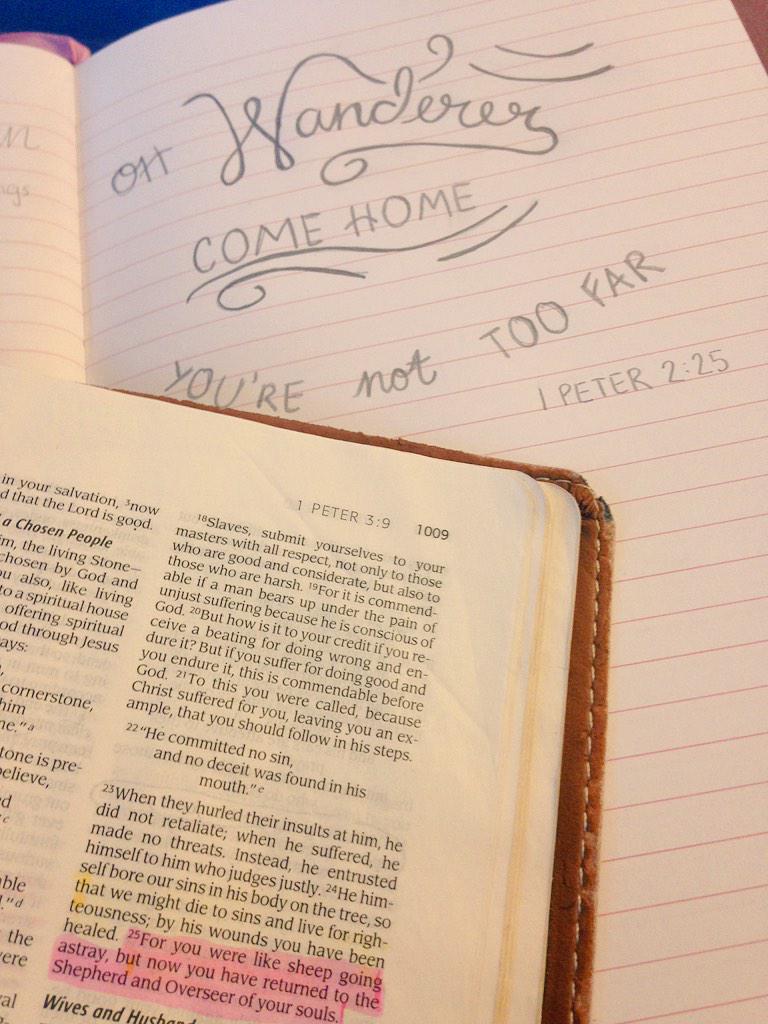 OH Wanderer
COME HOME
YOU'RE not TOO FAR
1 PETER 2:25
ngs
in your salvation, ³now
d that the Lord is good.
a Chosen People
im, the living Stone—
chosen by God and
ou also, like living
to a spiritual house
offering spiritual
od through Jesus
ays:
cornerstone,
him
ne." a
tone is pre-
believe,
d
c
ble
." d
the
vere
val
1 PETER 3:9 1009
¹⁸Slaves, submit yourselves to your
masters with all respect, not only to those
who are good and considerate, but also to
those who are harsh. ¹⁹For it is commend-
able if a man bears up under the pain of
unjust suffering because he is conscious of
God. ²⁰But how is it to your credit if you re-
ceive a beating for doing wrong and en-
dure it? But if you suffer for doing good and
you endure it, this is commendable before
God. ²¹To this you were called, because
Christ suffered for you, leaving you an ex-
ample, that you should follow in his steps.
²²"He committed no sin,
and no deceit was found in his
mouth." e
²³When they hurled their insults at him, he
did not retaliate; when he suffered, he
made no threats. Instead, he entrusted
himself to him who judges justly. ²⁴He him-
self bore our sins in his body on the tree, so
that we might die to sins and live for righ-
teousness; by his wounds you have been
healed. ²⁵For you were like sheep going
astray, but now you have returned to the
Shepherd and Overseer of your souls.
Wives and Husband